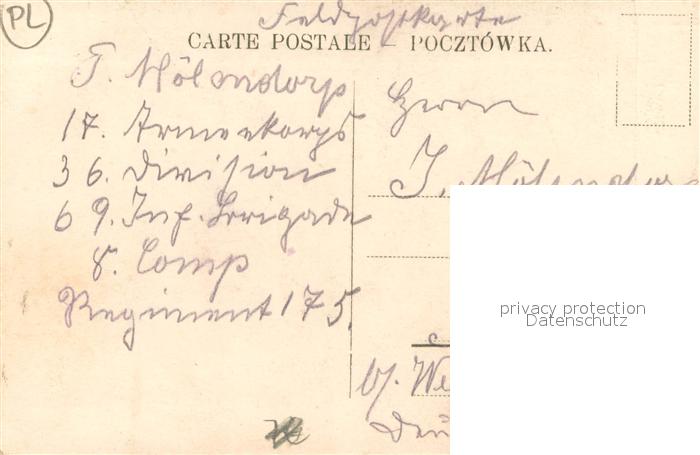 PL
Feldpostkarte
CARTE POSTALE – POCZTÓWKA.
F. Mölendorp
17. Armeekorps
36. Division
69. Inf. Brigade
8. Comp
Regiment 175.
Herrn
J. Mölendorp
b/. We
Deu
privacy protection
Datenschutz